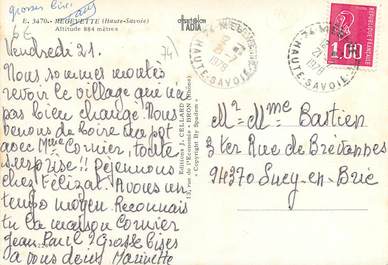 grosses bises
E. 3470. - MEGEVETTE (Haute-Savoie)
Altitude 884 mètres
Vendredi 21.
Nous sommes montés
revoir le village qui n'a
pas bien changé. Nous
venons de boire un pot
avec Mme Cornier, toute
surprise!! Déjeunons
chez Félizat. Avons un
temps moyen. Reconnais
tu la maison Cornier
Jean Paul? Grosses bises
à vous deux Marinette
Editions J. CELLARD
BRON (Rhône)
Copyright By
Mr Mme Bastien
3 ter Rue de Brévannes
94370 Sucy-en-Brie
HAUTE-SAVOIE
1978
HAUTE-SAVOIE
1978
1,00